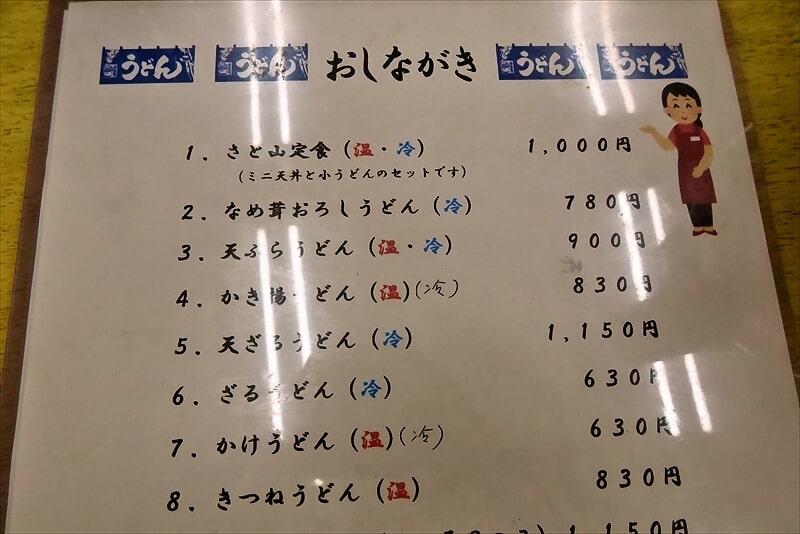 うどん うどん おしながき うどん うどん
1. さと山定食 (温・冷) 1,000円
(ミニ天丼と小うどんのセットです)
2. なめ茸おろしうどん (冷) 780円
3. 天ぷらうどん (温・冷) 900円
4. かき揚うどん (温)(冷) 830円
5. 天ざるうどん (冷) 1,150円
6. ざるうどん (冷) 630円
7. かけうどん (温)(冷) 630円
8. きつねうどん (温) 830円
1,150円